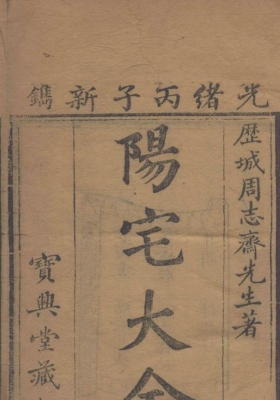 光緒丙子新鐫
歷城周志齋先生著
陽宅大全
寶興堂藏